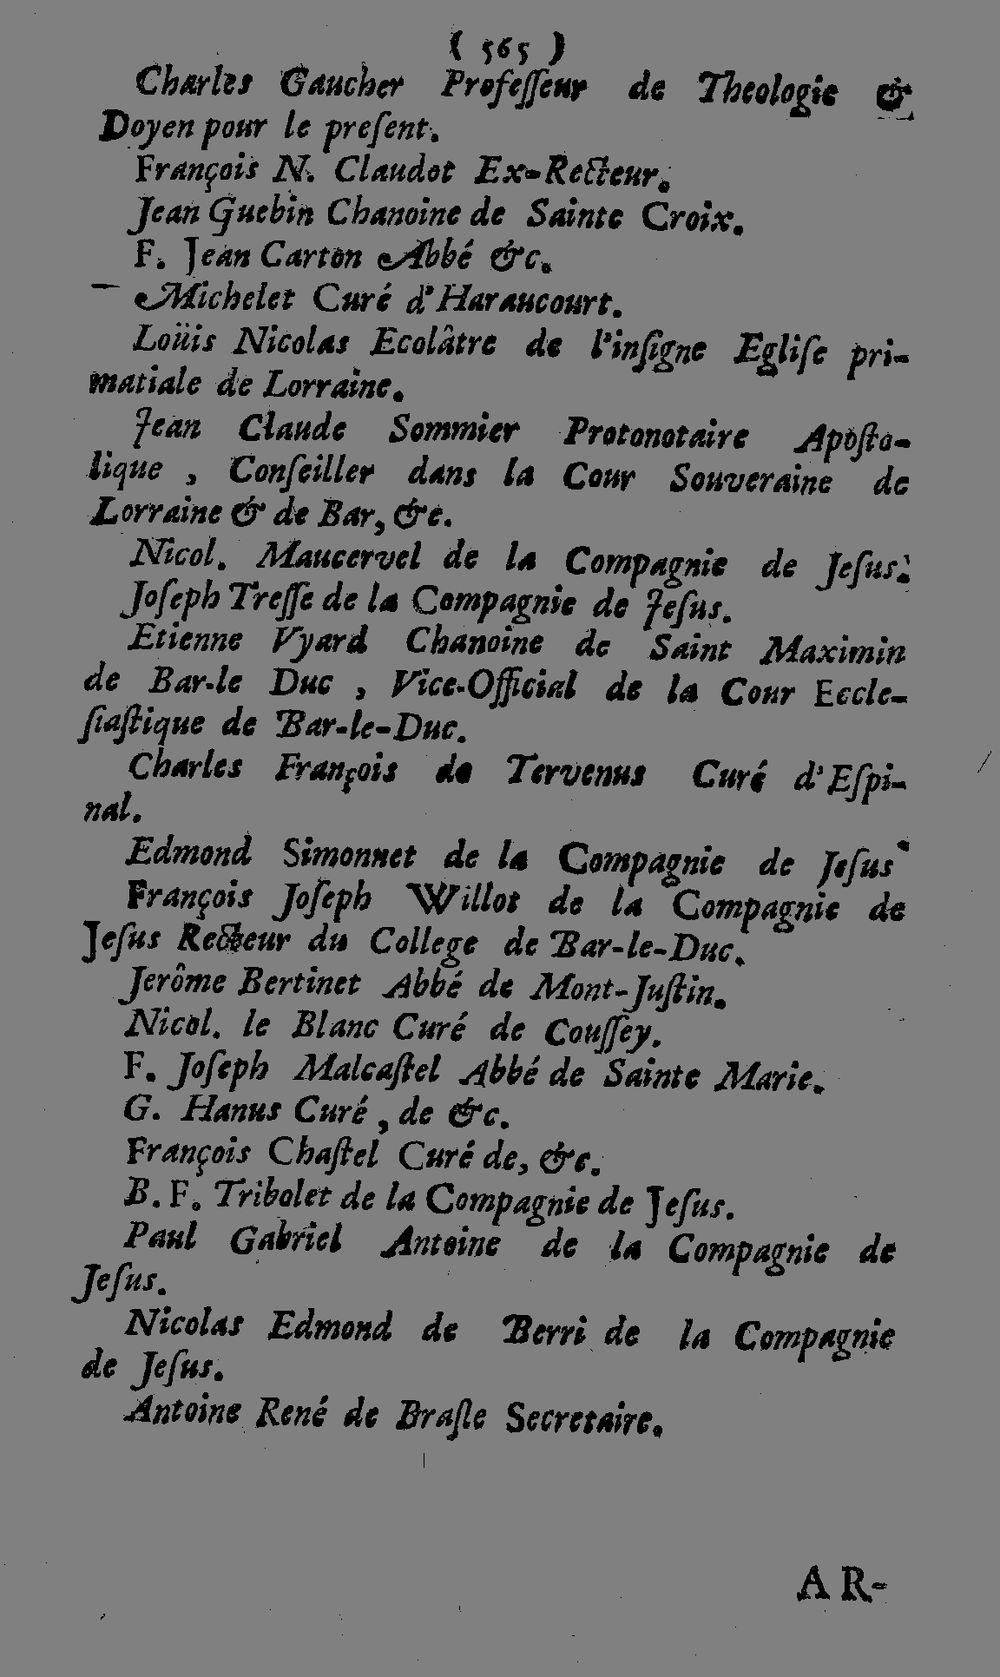 ( 565 )
Charles Gaucher Profeſſeur de Theologie &
Doyen pour le preſent.
François N. Claudot Ex-Recteur.
Jean Guebin Chanoine de Sainte Croix.
F. Jean Carton Abbé &c.
Michelet Curé d'Haraucourt.
Loüis Nicolas Ecolâtre de l'inſigne Egliſe pri-
matiale de Lorraine.
Jean Claude Sommier Protonotaire Apoſto-
lique , Conſeiller dans la Cour Souveraine de
Lorraine & de Bar, &c.
Nicol. Maucervel de la Compagnie de Jeſus.
Joſeph Treſſe de la Compagnie de Jeſus.
Etienne Vyard Chanoine de Saint Maximin
de Bar-le Duc , Vice-Official de la Cour Eccle-
ſiaſtique de Bar-le-Duc.
Charles François de Tervenus Curé d'Eſpi-
nal.
Edmond Simonnet de la Compagnie de Jeſus
François Joſeph Willot de la Compagnie de
Jeſus Recteur du College de Bar-le-Duc.
Jerôme Bertinet Abbé de Mont-Juſtin.
Nicol. le Blanc Curé de Couſſey.
F. Joſeph Malcaſtel Abbé de Sainte Marie.
G. Hanus Curé , de &c.
François Chaſtel Curé de, &c.
B. F. Tribolet de la Compagnie de Jeſus.
Paul Gabriel Antoine de la Compagnie de
Jeſus.
Nicolas Edmond de Berri de la Compagnie
de Jeſus.
Antoine René de Braſle Secretaire.
AR-